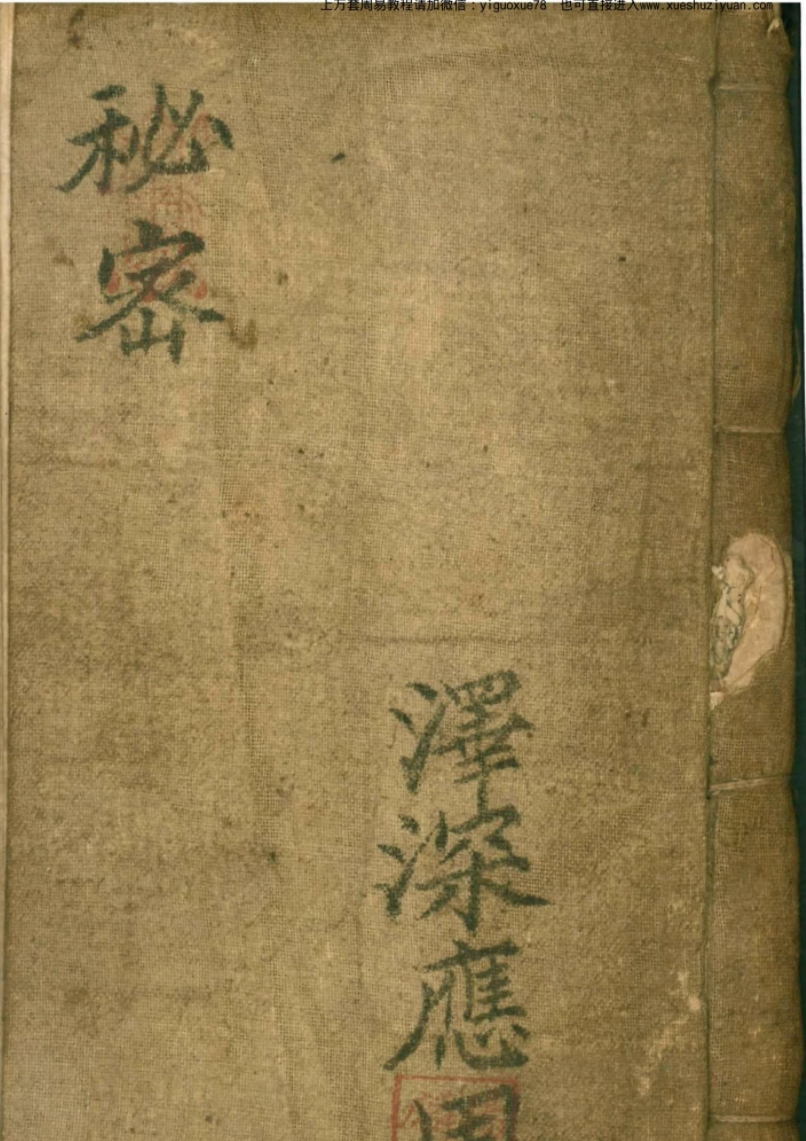 上万套周易教程请加微信：yiguoxue78 也可直接进入www.xueshuziyuan.com
秘密
澤深應用